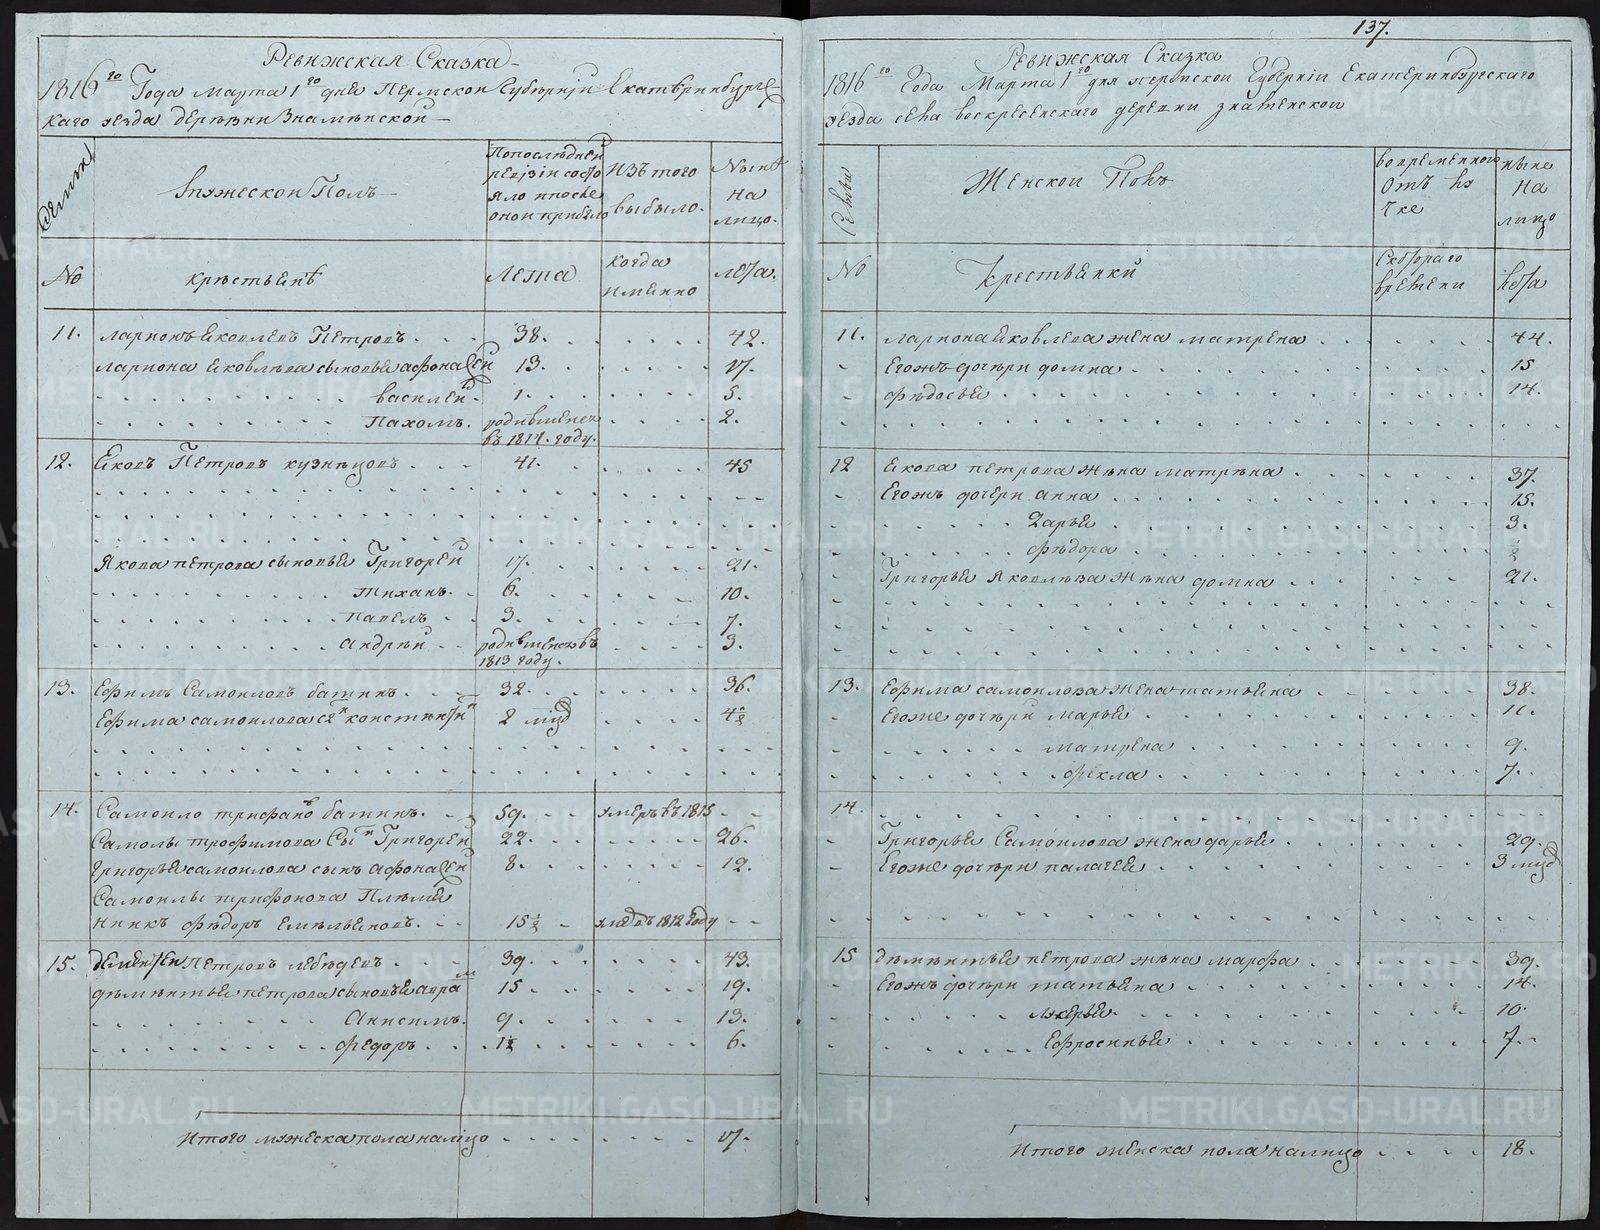 137.
Ревижская Сказка
1816го Года марта 1го дня Пермской Губернiи Екатеринбургс-
каго уезда деревни Знаменской
Семьи
Мужеской Полъ
Попоследней
ревизiи состо
яло ипосле
оной прибыло
Изъ того
выбыло.
Ныне
на
лицо.
№
крестьяне
Лета
когда
имянно
лета.
11. ларионъ Яковлевъ Петровъ. 38. 42.
лариона Яковлева сыновья афонасей 13. 17.
василей. 1. 5.
Пахомъ. родившейся 2.
въ 1814. году.
12. Яковъ Петровъ кузнецовъ 41. 45
Якова петрова сыновья Григорей 17. 21.
михаилъ. 6. 10.
павелъ 3. 7.
андрей родившейся въ 3.
1813 году.
13. Ефимъ Самоиловъ батинъ. 32. 36.
Ефима самоилова сынъ констянтинъ 2 мцд 4½
14. Самоило трифановъ батинъ. 59. умеръ въ 1815
Самоилы трофимова Сынъ Григорей 22. 26.
Григорья самоилова сынъ афонасей 8. 12.
Самоилы трифонова Племя
нникъ федоръ Емельяновъ. 15½ въ 1812 году
15. дементей Петровъ лебедевъ 39. 43.
дементья петрова сыновья аврам 15 19.
Анисимъ. 9. 13.
федоръ 1½ 6.
Итого мужеска пола налицо 17.
Ревижская Сказка
1816го Года Марта 1го дня пермской Губернiи Екатеринбургскаго
уезда села воскресенскаго деревни знаменской
Семьи
Женской Полъ
вовременной
отъ лу
чке
ныне
на
лицо
№
Крестьянки
Скотораго
времени
лета
11. лариона Яковлева жена матрена 44.
Егожъ дочери домна 15
федосья 14.
12 Якова петрова жена матрена 37.
Егожъ дочери анна 15.
Дарья 3.
федора ½
Григорья Яковлева жена домна 21.
13. Ефима самоилова жена татьяна 38.
Егоже дочери марья 11.
матрена 9.
фекла 7.
14.
Григорья Самоилова жена дарья 29.
Егоже дочери палагея 3 мцд
15 дементья петрова жена марфа 39.
Егожъ дочери татьяна 14.
лукерья. 10.
Ефросинья 7.
Итого женска пола налицо 18.
METRIKI.GASO-URAL.RU